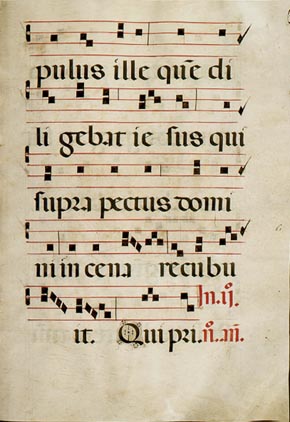 pulus ille quē di
li gebat ie sus qui
supra pectus domi
ni in cena recubu
In. ij.
it. Qui pri. n̊. iii.